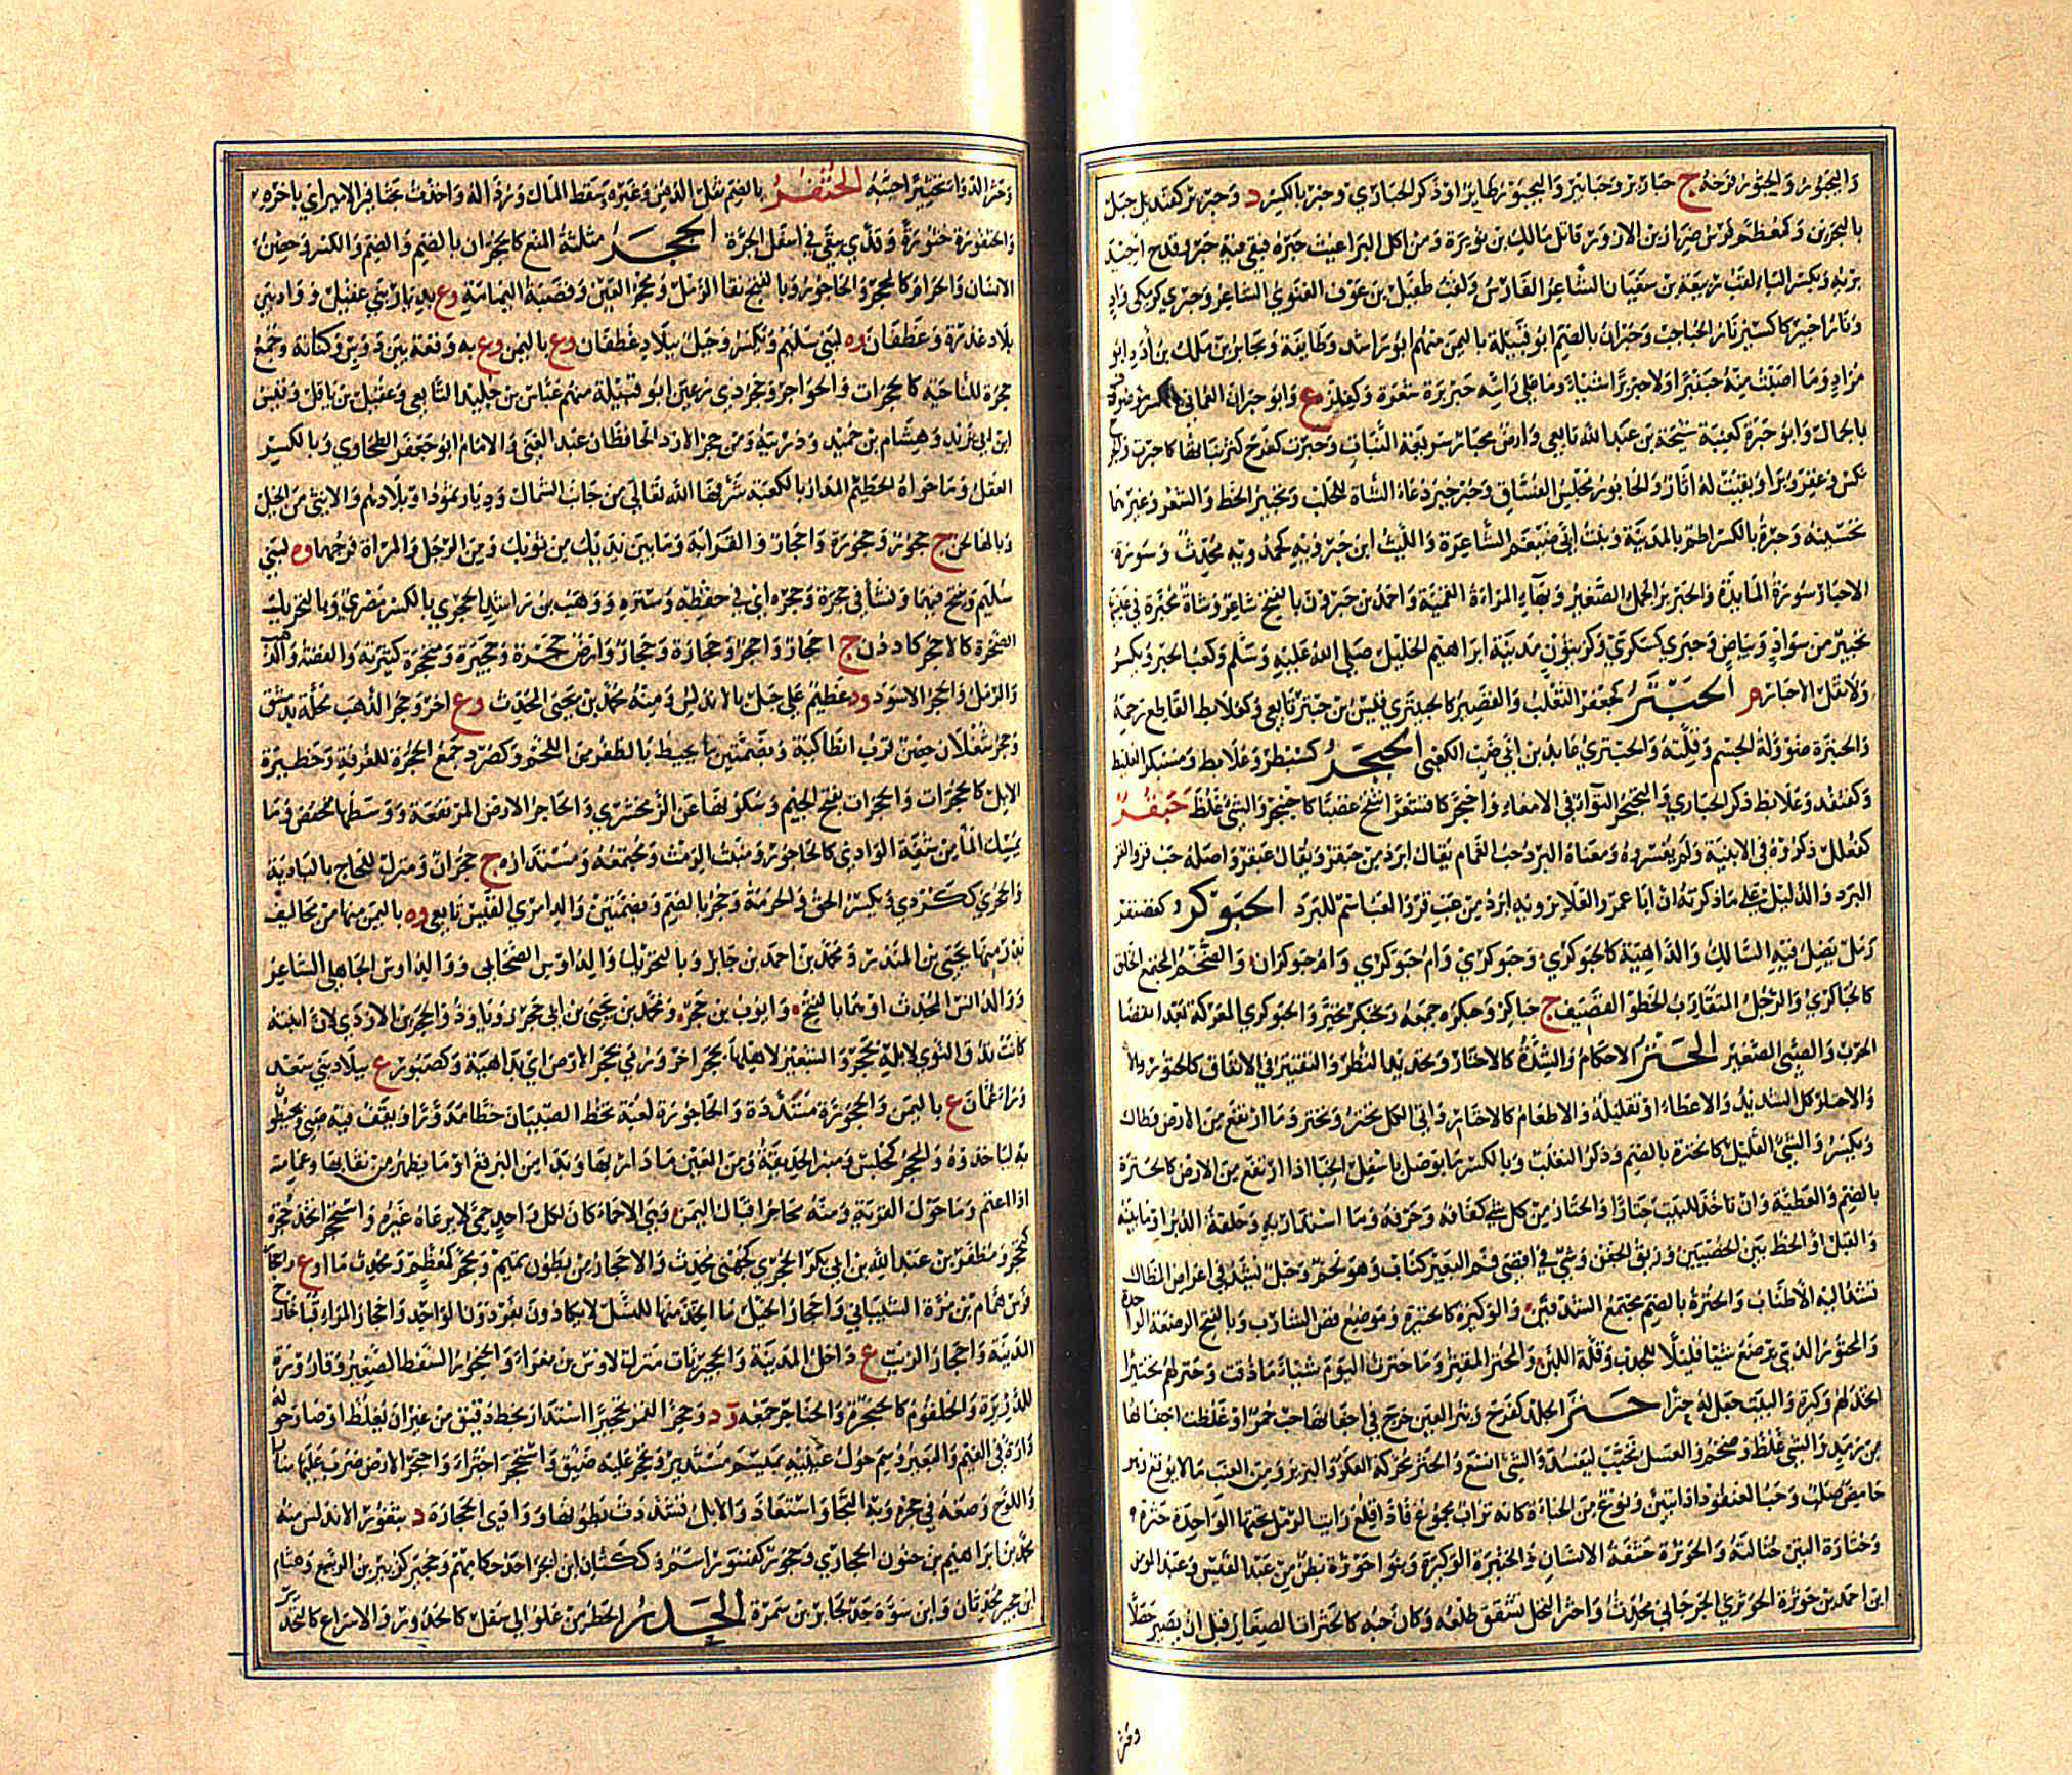 واليحبور واليحبور فرخه ج حبارير وحبابير واليحبور طاير او ذكر الحبارى وحبر بالكسر د وحبرير كقنديل جبل
بالبحرين وكمعظم فرس ضرار بن الازور قاتل مالك بن نويرة ومن اكل البراغيث جبزه فبقى فيه حبر وقدح اجيد
بريه وبكسر الباء لقب ربيعة بن سفيان الشاعر الفارس ولقب طفيل بن عوف الغنوي الشاعر وحبرى كزمكى واد
ونار احبير كاكسير نار الحباحب وحبران بالضم ابو قبيلة باليمن منهم ابو راشد وطائفة ويحابر بن مالك بن ادد ابو
مراد وما اصبت منه حبنبرا ولا حبربرا شيئا وما على راسه حبربرة شعرة وكفلز ع وابو حبران الحماني موصوف
بالجمال وابو حبرة كعنبة شيحة بن عبد الله تابعي وارض محبار سريعة النبات وحبرت كفرح كثر نباتها كاحبرت والجرح
نكس وغفر وبرا وبقيت له اثار والحابور مجلس الفساق وحبر حبر دعاء الشاة للحلب وتحبير الخط والشعر وغيرهما
تحسينه وحبرة بالكسر اطم بالمدينة وبنت ابي ضيغم الشاعرة والليث ابن حبرويه كحمدويه محدث وسورة
الاحبار سورة المائدة والحبربر الجمل الصغير وبهاء المراة القمية واحمد بن حبرون بالفتح شاعر وشاة محبرة في عينيها
تحبير من سواد وبياض وحبرى كسكرى وكزيتون مدينة ابراهيم الخليل صلى الله عليه وسلم وكعب الحبر ويكسر
ولا تقل الاحبار الحبتر كجعفر الثعلب والقصير كالحبيتر وقيس بن حبتر تابعي وكعلابط القاطع رحمه
والحبترة ضؤولة الجسم وقلته والحبتري عائذ بن ابي ضب الكعبي الحبجر كسبطر وعلابط ومسبكر الغليظ
وكقنفد وعلابط ذكر الحبارى والحبجر التوائر في الامعاء واحبجر كاقشعر انتفخ غضبا كاحبنجر والشئ غلظ حبقر
كفعلل ذكروه في الابنية ولم يفسروه ومعناه البرد حب الغمام يقال ابرد من حبقر ويقال عبقر واصله حب قر والقر
البرد والدليل على ما ذكرته ان ابا عمرو العلاء يرويه ابرد من عب قر والعب اسم للبرد الحبوكر كغضنفر
رمل يضل فيه السالك والداهية كالحبوكرى وحبوكرى وام حبوكرى وام حبوكران والضخم المجتمع الخلق
كالحباكرى والرجل المتقارب الخطو القضيف ج حباكر وحبكره جمعه وتحبكر تحير والحبوكرى المعركة بعد انقضا
الحرب والصبي الصغير الحتر الاحكام والشدة كالاحتار وتحديد النظر والتقتير في الانفاق كالحتور والا
والاحتار كل الشديد والاعطاء او تقليله والاطعام كالاحتار واتى الكل يحتر ويحتر وما ارتفع من الارض وطال
ويكسر والشئ القليل كالحترة بالضم وذكر الثعلب وبالكسر ما يوصل باسفل الخبا اذا ارتفع من الارض كالحترة
بالضم والعطية وان تاخذ للبيت حتارا والحتار من كل شئ كفافه وحرفه وما استدار به وحلقة الدبر او ما بينه
والقبل او الخط بين الخصيتين وزيق الجفن وشئ في اقصى فم البعير كناب وهو لحم وحبل يشد في اعراض المظال
تشد اليه الاطناب والحترة بالضم مجتمع الشدقين والوكيرة كالحتيرة وموضع قص الشارب وبالفتح الرضعة الواحدة
والمحتور الذي يرضع شيئا قليلا للجدب وقلة اللبن والمحتر المقتر وما حترت اليوم شيئا ما ذقت وحتر لهم تحتيرا
اتخذ لهم وكيرة والبيت جعل له حترا حثر الجلد كفرح بثر العين خرج في اجفانها حب حمر او غلظت اجفانها
من رمد والشئ غلظ وضخم والعسل تحبب ليفسد والشئ اتسع والحثر محركة العكر والبرير ومن العنب ما لا يونع وتر
حامض صلب وحب العنقود اذا تبين ونوع من الحباة كانه تراب مجموع فاذا قلع رايت الرمل تحتها الواحدة حثرة
وحثارة التبن حثالته والحوثرة حشفة الانسان والحثيرة الوكيرة وبنو حوثرة بطن من عبد القيس وعبد المومن
ابن احمد بن حوثرة الحوثري الجرجاني محدث واحثر النخل تشقق طلعه وكان حبه كالحثرات الصغار قبل ان يصير حصلا
وحثر الدواء تحثيرا حببه الحثفر بالضم ثفل الدهن وغيره وسقط المال ورذاله واخذت بحثافير الامر اي باخره
والحثفورة خثورة وقذى يبقى في اسفل الجرة الحجر مثلثة المنع كالحجران بالضم والضم والكسر وحضن
الانسان والحرام كالمحجر والحاجور وبالفتح نقا الرمل ومحجر العين وقصبة اليمامة وع بديار بني عقيل و واد بين
بلاد عذرة وغطفان وه لبني سليم ويكسر وجبل ببلاد غطفان وع باليمن وع به وقعة بين دوس وكنانة وجمع
حجرة للناحية كالحجرات والحواجر وحجر ذي رعين ابو قبيلة منهم عباس بن خليد التابعي وعقيل بن باقل وقيس
ابن ابي يزيد وهشام بن حميد وذريته ومن حجر الازد الحافظان عبد الغني والامام ابو جعفر الطحاوي وبالكسر
العقل وما حواه الحطيم المدار بالكعبة شرفها الله تعالى من جانب الشمال وديار ثمود او بلادهم والانثى من الخيل
وبالهاء لحن ج حجور وحجورة واحجار والقرابة وما بين يديك من ثوبك ومن الرجل والمراة فرجهما وه لبني
سليم ويفتح فيهما ونشا في حجره وحجره اي في حفظه وستره ووهب بن راشد الحجري بالكسر مصري وبالتحريك
الصخرة كالاحجر كاردن ج احجار واحجر وحجارة وحجار وارض حجرة وحجيرة ومتحجرة كثيرته والفضة والذهب
والرمل والحجر الاسود ود عظيم على جبل بالاندلس ومنه محمد بن يحيى المحدث وع اخر وحجر الذهب محلة بدمشق
وحجر شغلان حصن قرب انطاكية وبضمتين ما يحيط بالظفر من اللحم وكصرد جمع الحجرة للغرفة وحظيرة
الابل كالحجرات والحجرات بفتح الجيم وسكونها عن الزمخشري والحاجر الارض المرتفعة ووسطها منخفض وما
يمسك الماء من شفة الوادي كالحاجور ومنبت الرمث ومجتمعه ومستداره ج حجران ومنزل للحاج بالبادية
والحجري ككردي ويكسر الحق والحرمة وحجر بالضم وبضمتين والد امرئ القيس تابعي وه باليمن منها من مخاليف
بدر منها يحيى بن المنذر ومحمد بن احمد بن جابر وبالتحريك والد اوس الصحابي ووالد اوس الجاهلي الشاعر
ووالد انس المحدث او هما بالفتح وايوب بن حجر ومحمد بن يحيى بن ابي حجر رويا وذو الحجرين الازدي لان ابنته
كانت تدق النوى لابله بحجر والشعير لاهلها بحجر اخر ورمي بحجر الارض اي بداهية وكصبور ع ببلاد بني سعد
وراء عمان ع باليمن والحجورة مشددة والحاجورة لعبة تخط الصبيان خطا مدورا ويقف فيه صبي ويحيطون
به لياخذوه والمحجر كمجلس ومنبر الحديقة ومن العين ما دار بها وبدا من البرقع او ما يظهر من نقابها وعمامته
اذا اعتم وما حول القرية ومنه محاجر اقيال اليمن وهي الاحماء كان لكل واحد حمى لا يرعاه غيره واستحجر اتخذ حجرة
كتحجر ومظفر بن عبد الله بن ابي بكر الحجري كجهني محدث والاحجار من بطون تميم ومحجر كمعظم ومحدث ما او ع واحجار
فرس همام بن مرة الشيباني واحجار الخيل ما اتخذ منها للنسل لا يكادون يفردون الواحد واحجار المراء قباء خارج
المدينة واحجار الزيت ع داخل المدينة والحجيريات منزل لاوس بن مغراء والحنجور السفط الصغير وقارورة
للذريرة والحلقوم كالحنجرة والحناجر جمعه ود وحجر القمر تحجيرا استدار بخط دقيق من غير ان يغلظ او صار حوله
دارة في الغيم والبعير وسم حول عينيه بميسم مستدير وتحجر عليه ضيق واستحجر اجترا واحتجر الارض ضرب عليها منارا
واللوح وضعه في حجره وبه التجا واستعاذ والابل تشددت بطونها ووادي الحجارة د بثغور الاندلس منه
محمد بن ابراهيم بن حيون الحجاري وحجور كقسور اسم وككتان ابن ابجر احد حكامهم وحجير كزبير بن الربيع وهشام
ابن حجير محدثان وابن سوءة جد لجابر بن سمرة الحدر الحط من علو الى سفل كالحدور والاسراع كالتحدير
وقر